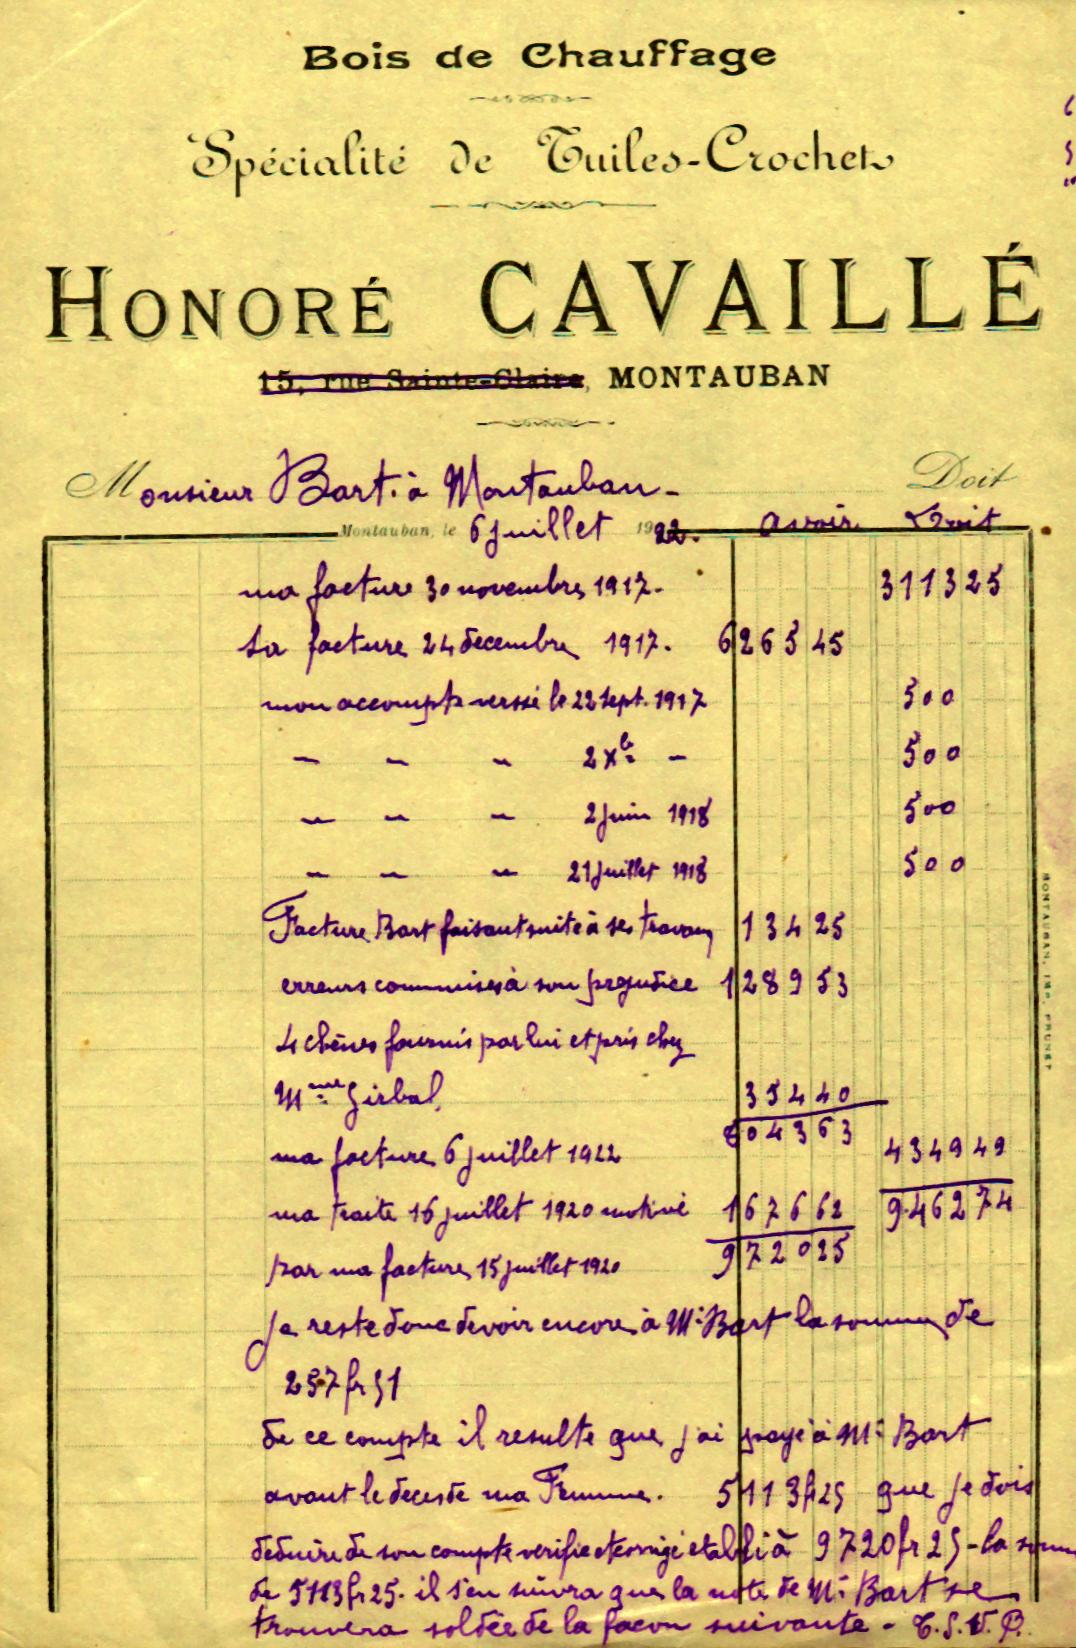 Bois de Chauffage
Spécialité de Tuiles-Crochets
HONORÉ CAVAILLÉ
15, rue Sainte-Claire, MONTAUBAN
Monsieur Bart. à Montauban - Doit
Montauban, le 6 juillet 1922. avoir Doit
ma facture 30 novembre 1917. 3113 25
Sa facture 24 decembre 1917. 6265 45
mon accompte versé le 22 sept. 1917 500
— — — 2 Xbre — 500
— — — 2 juin 1918 500
— — — 21 juillet 1918 500
Facture Bart faisant suite à ses travaux 134 25
erreurs commises à son prejudice 1289 53
4 chênes fournis par lui et pris chez
Mme Girbal 354 40
8043 63
ma facture 6 juillet 1922 4349 49
ma traite 16 juillet 1920 motivé 1676 62 9.462 74
par ma facture 15 juillet 1920 9720 25
Je reste donc devoir encore à Mr Bart la somme de
257 fr 51
de ce compte il resulte que j'ai payé à Mr Bart
avant le deces de ma Femme. 5113 fr 25 que je dois
deduire de son compte verifie et corrigé etabli à 9720 fr 25 - la somme
de 5113 fr 25. il s'en suivra que la note de Mr Bart se
trouvera soldée de la façon suivante - T. S. V. P.
MONTAUBAN, IMP. PRUNET